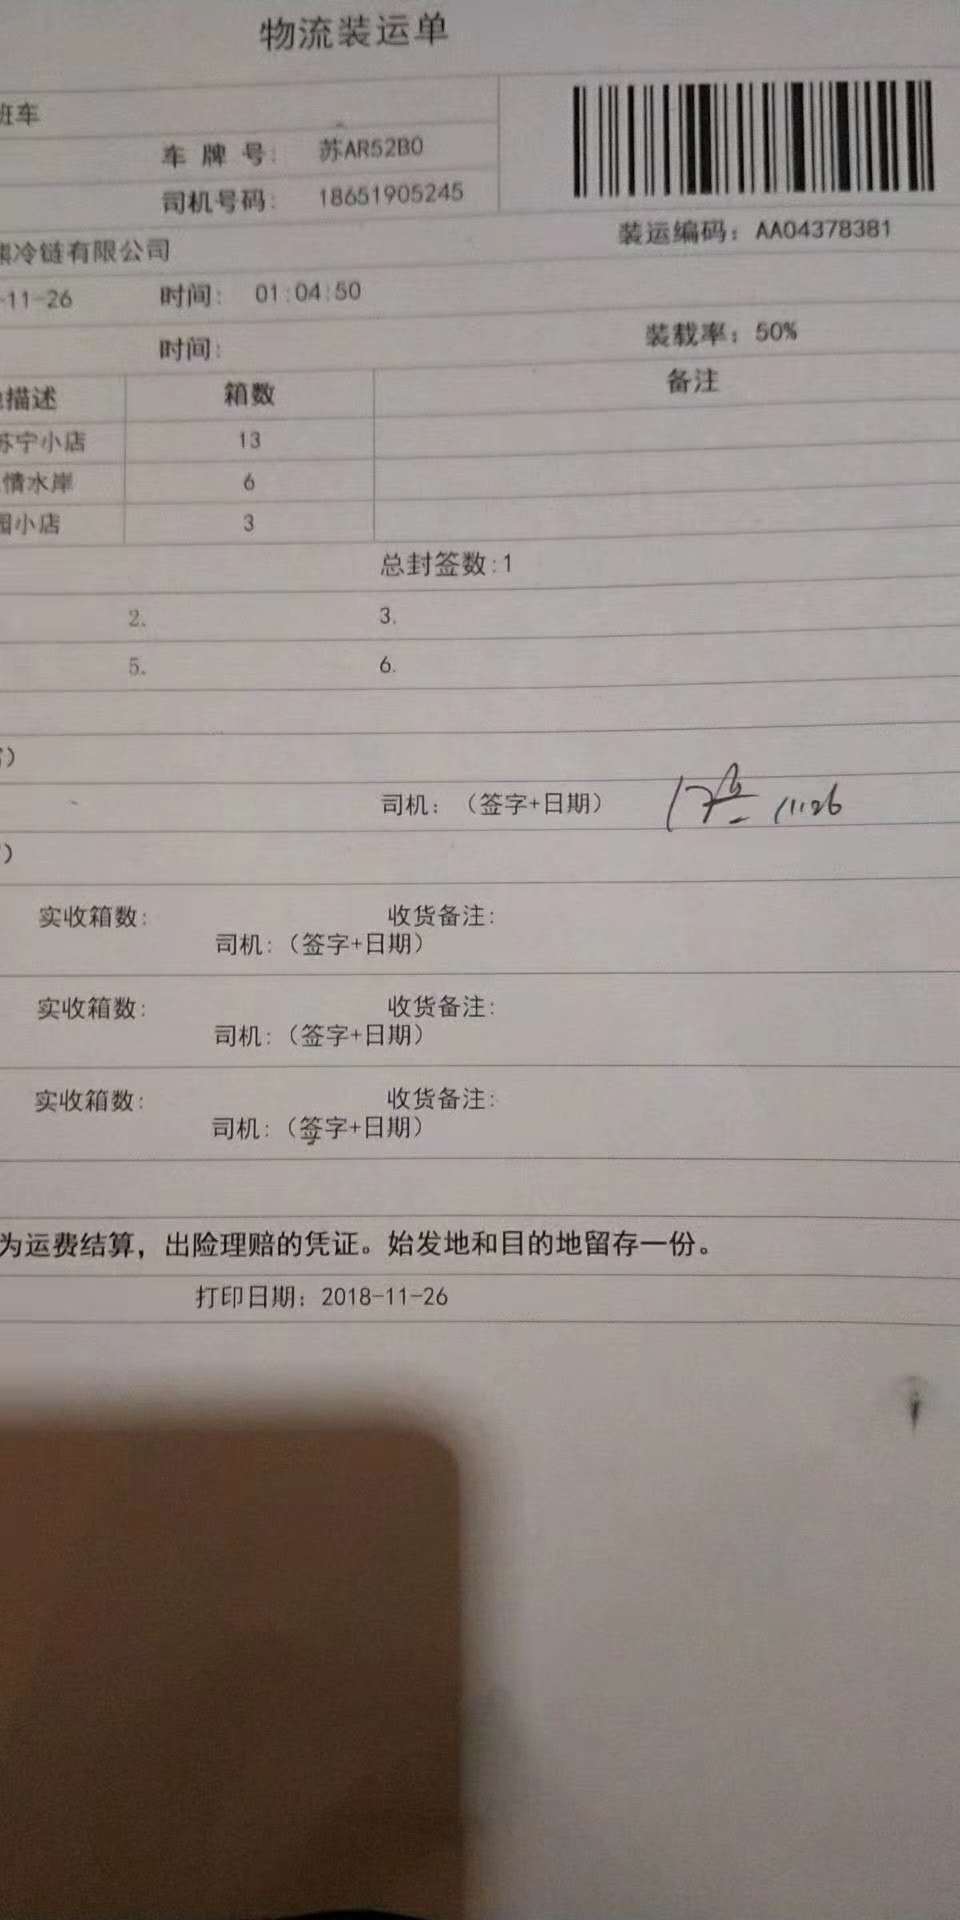 物流装运单
班车
车 牌 号： 苏AR52B0
司机号码： 18651905245
装运编码：AA04378381
熊冷链有限公司
-11-26 时间： 01:04:50
时间：
装载率：50%
描述 箱数 备注
苏宁小店 13
情水岸 6
园小店 3
总封签数:1
2. 3.
5. 6.
）
司机：（签字+日期） 1126
）
实收箱数： 收货备注：
司机：（签字+日期）
实收箱数： 收货备注：
司机：（签字+日期）
实收箱数： 收货备注：
司机：（签字+日期）
为运费结算，出险理赔的凭证。始发地和目的地留存一份。
打印日期：2018-11-26